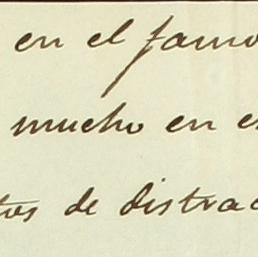 en el famo
mucho en es
tos de distrac